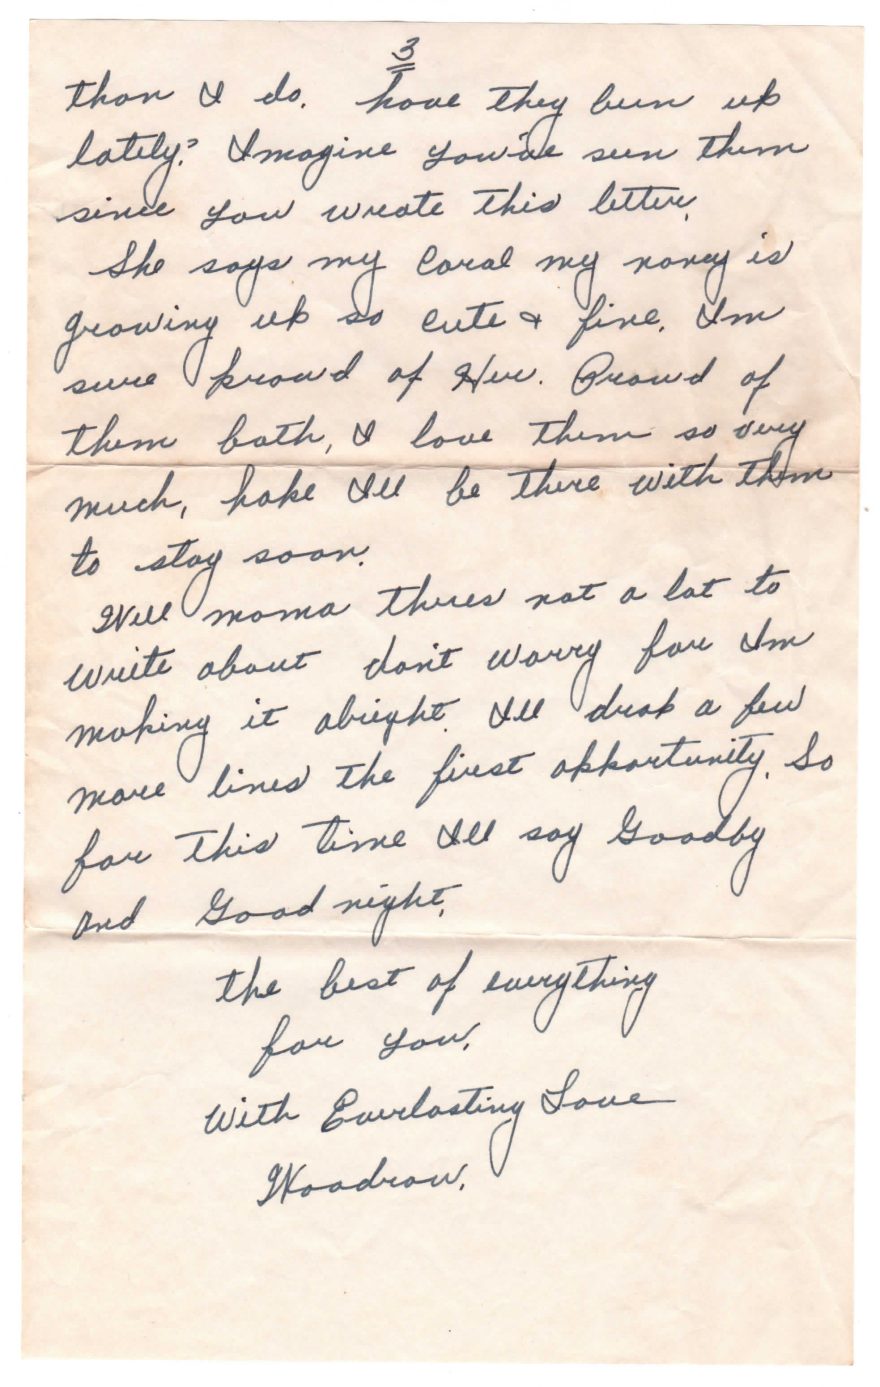 3
than I do. have they been up
lately? Imagine you've seen them
since you wrote this letter.
She says my Carol my nancy is
growing up so cute & fine. Im
sure proud of Her. Proud of
them both, I love them so very
much, hope Ill be there with them
to stay soon.
Well moma theres not a lot to
write about don't worry for Im
making it alright. Ill drop a few
more lines the first opportunity. So
for this time Ill say Goodby
and Good night.
the best of everything
for you.
With Everlasting Love
Woodrow.